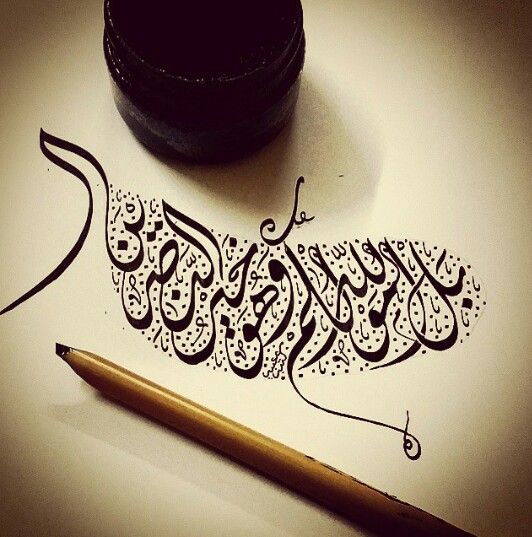 بل الله مولاكم وهو خير الناصرين